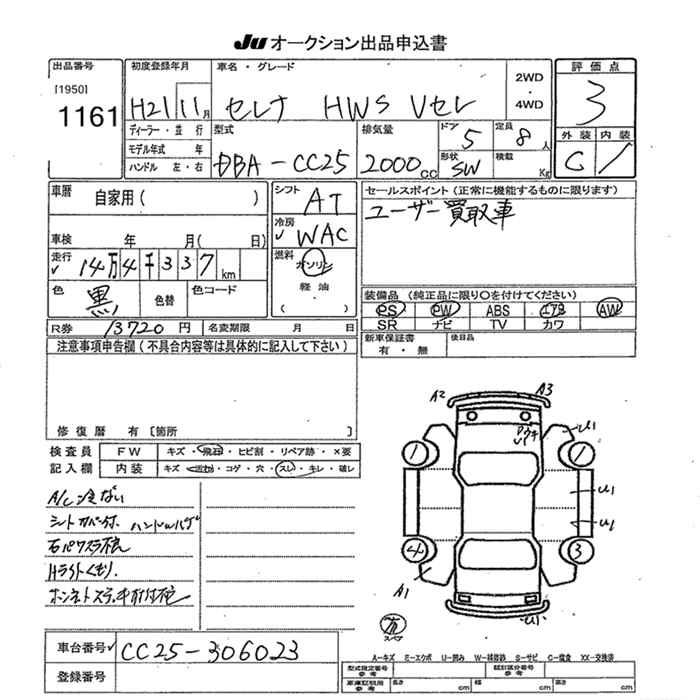 JU オークション出品申込書
出品番号
[1950]
1161
初度登録年月
H21 11月
車名・グレード
セレナ HWS Vセレ
2WD
・
4WD
評価点
3
外装 内装
C
ディーラー・並行
モデル年式 年
ハンドル 左・右
型式
DBA-CC25
排気量
2000cc
ドア 5
定員 8人
形状 SW
積載 Kg
車歴 自家用( )
車検 年 月( 日)
走行 14万4千337km
色 黒
色替
色コード
シフト AT
冷房 WAC
燃料 ガソリン
軽油
( )
セールスポイント(正常に機能するものに限ります)
ユーザー買取車
装備品 (純正品に限り○を付けてください)
PS PW ABS エアB AW
SR ナビ TV カワ
新車保証書
有・無
後日品
R券 13720円
名変期限 月 日
注意事項申告欄(不具合内容等は具体的に記入して下さい)
修復歴 有[箇所 ]
検査員
記入欄
FW キズ・飛石・ヒビ割・リペア跡・×要
内装 キズ・・コゲ・穴・スレ・キレ・破レ
A/C
シートカバー付
ハンドル
石
Hライトくもり.
A2 A3
U1
1 1
U1
U1
4 3
A1
U1
スペア
A-キズ E-エクボ U-凹み W-補修跡 S-サビ C-腐食 XX-交換済
車台番号 CC25-306023
登録番号
型式指定番号
参考
類別区分番号
参考
車庫証明用
参考
長さ cm
幅 cm
高さ cm